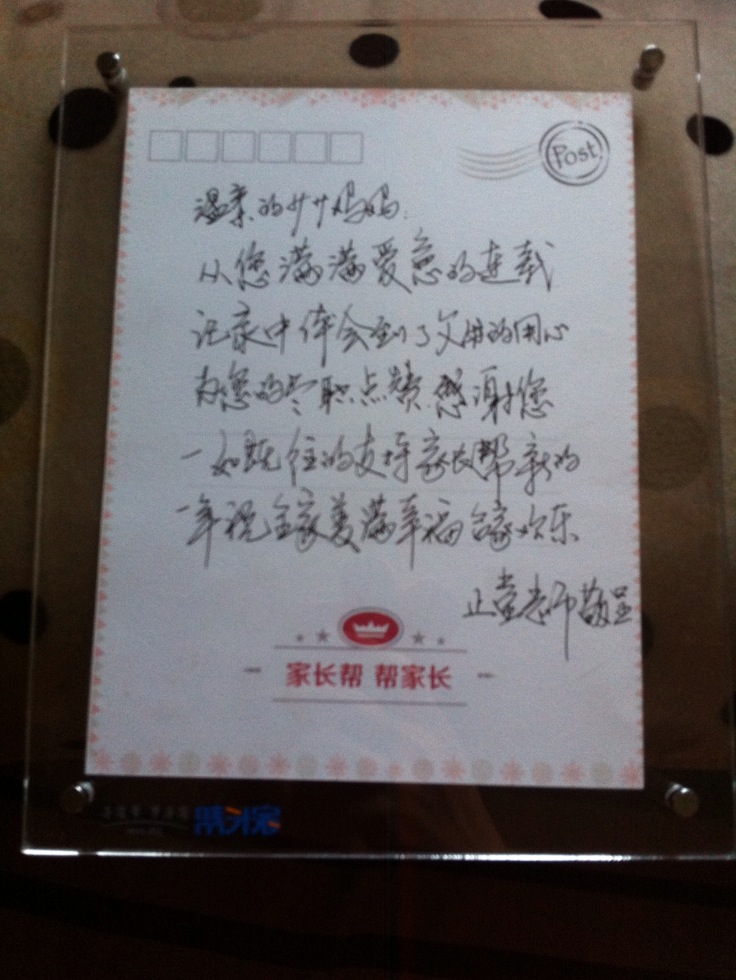 Post
温柔的廿廿妈妈:
从您满满爱意的连载
记录中体会到了父母的用心
为您的尽职点赞 感谢您
一如既往的支持家长帮 新的
一年祝全家美满幸福 合家欢乐
正堂老师敬呈
家长帮 帮家长